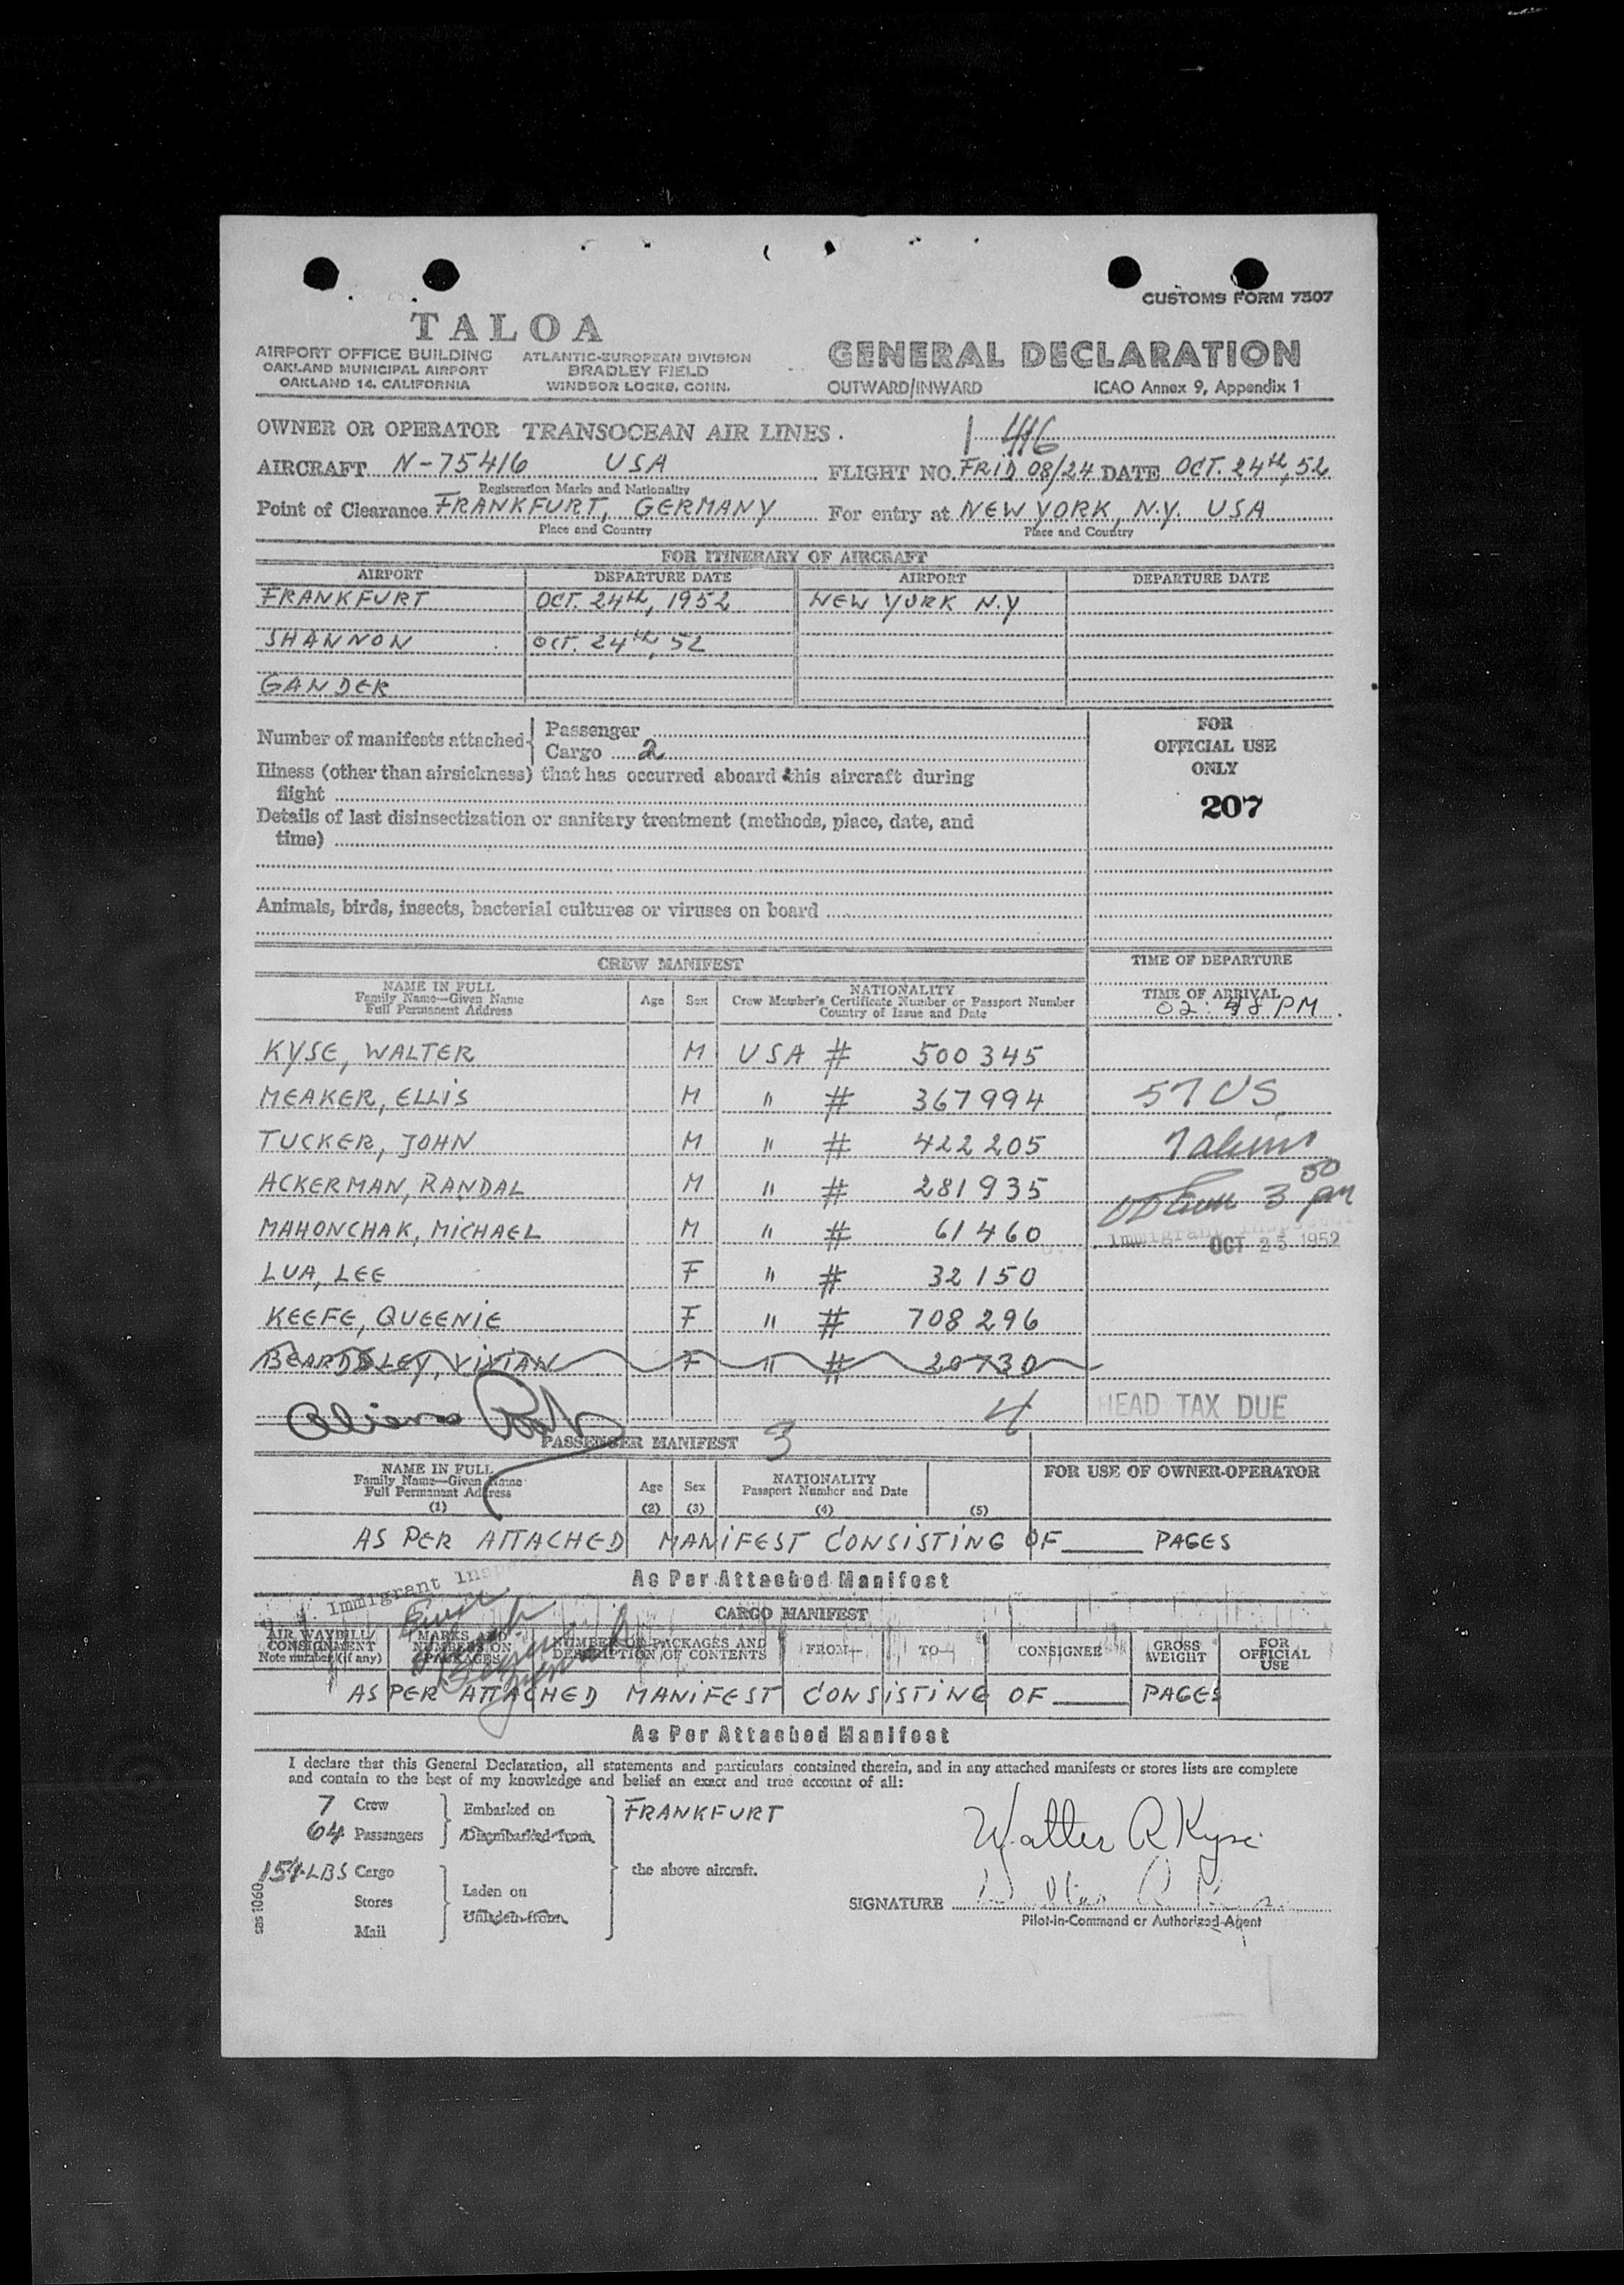 CUSTOMS FORM 7507
TALOA
AIRPORT OFFICE BUILDING
OAKLAND MUNICIPAL AIRPORT
OAKLAND 14, CALIFORNIA
ATLANTIC-EUROPEAN DIVISION
BRADLEY FIELD
WINDSOR LOCKS, CONN.
GENERAL DECLARATION
OUTWARD/INWARD ICAO Annex 9, Appendix 1
OWNER OR OPERATOR TRANSOCEAN AIR LINES. 1 416
AIRCRAFT N-75416 USA FLIGHT NO. FRID 08/24 DATE OCT. 24th, 52
Registration Marks and Nationality
Point of Clearance FRANKFURT, GERMANY For entry at NEW YORK, N.Y. USA
Place and Country Place and Country
FOR ITINERARY OF AIRCRAFT
AIRPORT DEPARTURE DATE AIRPORT DEPARTURE DATE
FRANKFURT OCT. 24th, 1952 NEW YORK N.Y
SHANNON OCT. 24th, 52
GANDER
Number of manifests attached { Passenger
Cargo 2
FOR
OFFICIAL USE
ONLY
207
Illness (other than airsickness) that has occurred aboard this aircraft during
flight
Details of last disinsectization or sanitary treatment (methods, place, date, and
time)
Animals, birds, insects, bacterial cultures or viruses on board
CREW MANIFEST TIME OF DEPARTURE
NAME IN FULL
Family Name—Given Name
Full Permanent Address
Age Sex
NATIONALITY
Crew Member's Certificate Number or Passport Number
Country of Issue and Date
TIME OF ARRIVAL
02:48 PM
KYSE, WALTER M USA # 500345
MEAKER, ELLIS M " # 367994 57 US
TUCKER, JOHN M " # 422205 7 aliens
ACKERMAN, RANDAL M " # 281935 3 50 pm
MAHONCHAK, MICHAEL M " # 61460 Immigrant Inspector
OCT 25 1952
LUA, LEE F " # 32150
KEEFE, QUEENIE F " # 708296
BEARDSLEY, VIVIAN F " # 20730
4 HEAD TAX DUE
PASSENGER MANIFEST 3
NAME IN FULL
Family Name—Given Name
Full Permanent Address
(1)
Age
(2)
Sex
(3)
NATIONALITY
Passport Number and Date
(4) (5)
FOR USE OF OWNER-OPERATOR
AS PER ATTACHED MANIFEST CONSISTING OF ____ PAGES
As Per Attached Manifest
Immigrant
CARGO MANIFEST
AIR WAYBILL/
CONSIGNMENT
Note number (if any)
MARKS AND
NUMBERS ON
PACKAGES
NUMBER OF PACKAGES AND
DESCRIPTION OF CONTENTS
FROM TO CONSIGNEE
GROSS
WEIGHT
FOR
OFFICIAL
USE
AS PER ATTACHED MANIFEST CONSISTING OF ____ PAGES
As Per Attached Manifest
I declare that this General Declaration, all statements and particulars contained therein, and in any attached manifests or stores lists are complete
and contain to the best of my knowledge and belief an exact and true account of all:
7 Crew
64 Passengers
Embarked on
Disembarked from
FRANKFURT
Walter R Kyse
LBS Cargo
Stores
Mail
Laden on
Unladen from
the above aircraft.
SIGNATURE
Pilot-in-Command or Authorized Agent
sas 1060